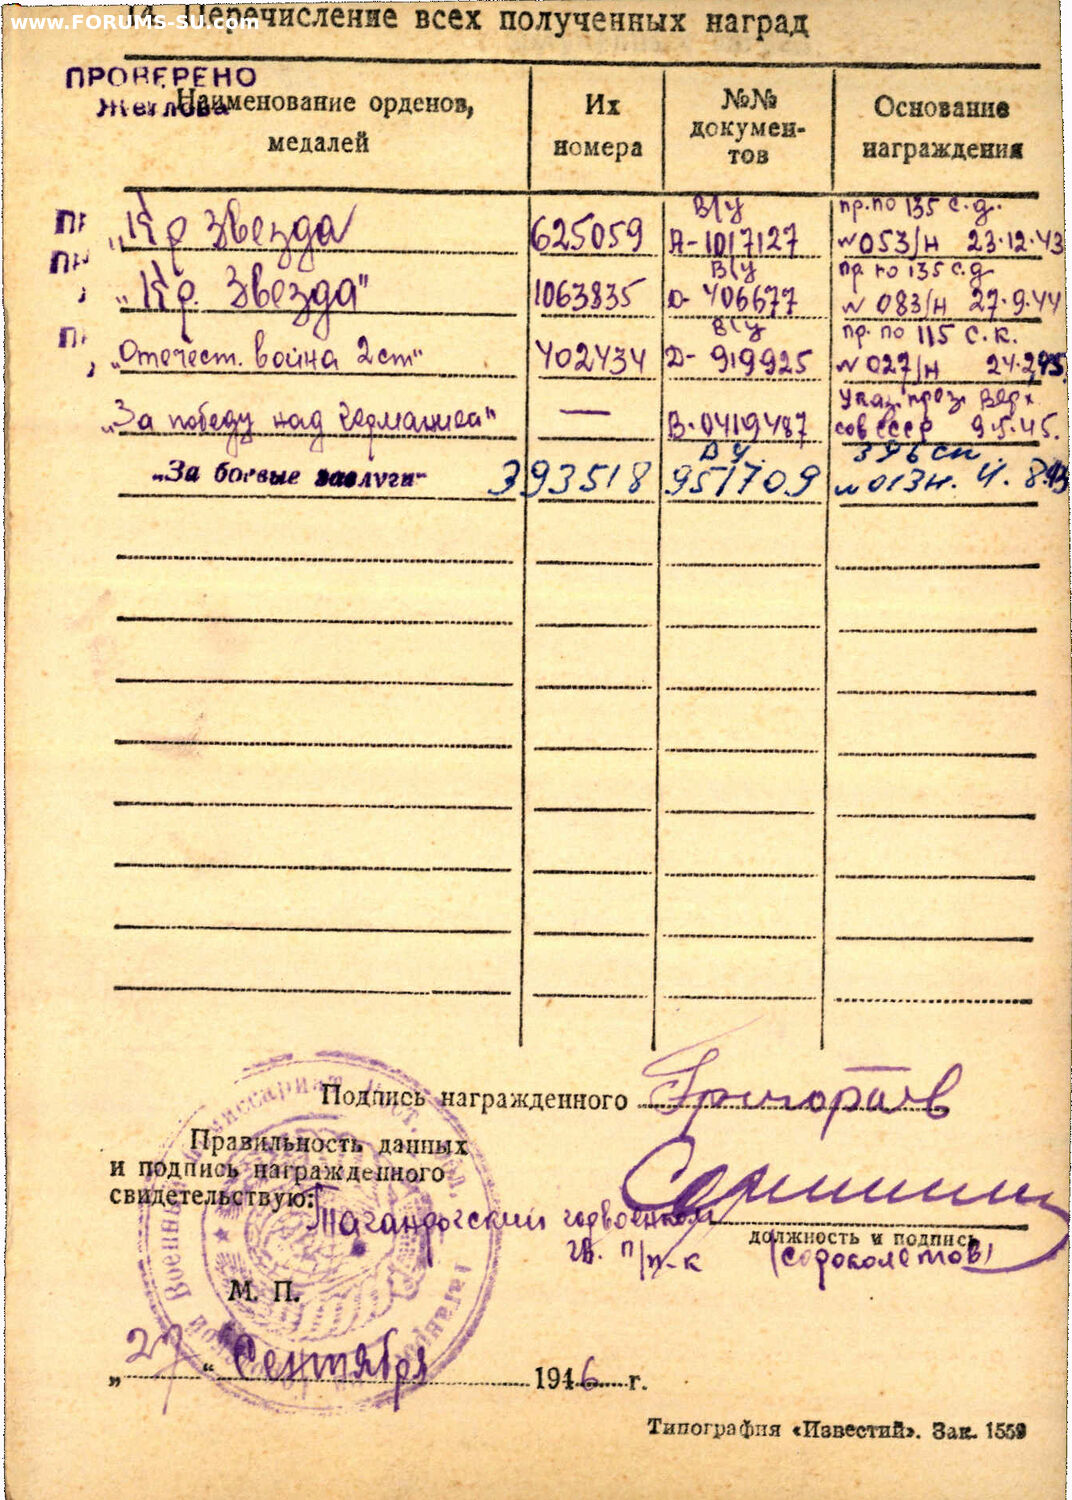 www.FORUMS-SU.com
14. Перечисление всех полученных наград
ПРОВЕРЕНО
Жеглова
Наименование орденов, медалей
Их номера
№№ докумен-
тов
Основание награждения
„Кр Звезда 625059 В/у А-1017127 пр. по 135 с.д. №053/н 23.12.43
„Кр. Звезда" 1063835 В/у Д-406677 пр по 135 с.д №083/н 27.9.44
„Отечест. война 2 ст" 402434 В/у Д-919925 пр. по 115 с.к. №027/н 24.2.45.
„За победу над Германией" — В-0419487 Указ. през. Верх сов СССР 9.5.45.
„За боевые заслуги" 393518 ВУ 951709 396 сп. №013н. 4.8.43
Подпись награжденного Григорьев
Правильность данных
и подпись награжденного
свидетельствую: Таганрогский горвоенком
должность и подпись
гв. п/п-к (Сороколетов)
М. П.
„27" Сентября 1946 г.
Типография «Известий». Зак. 1559